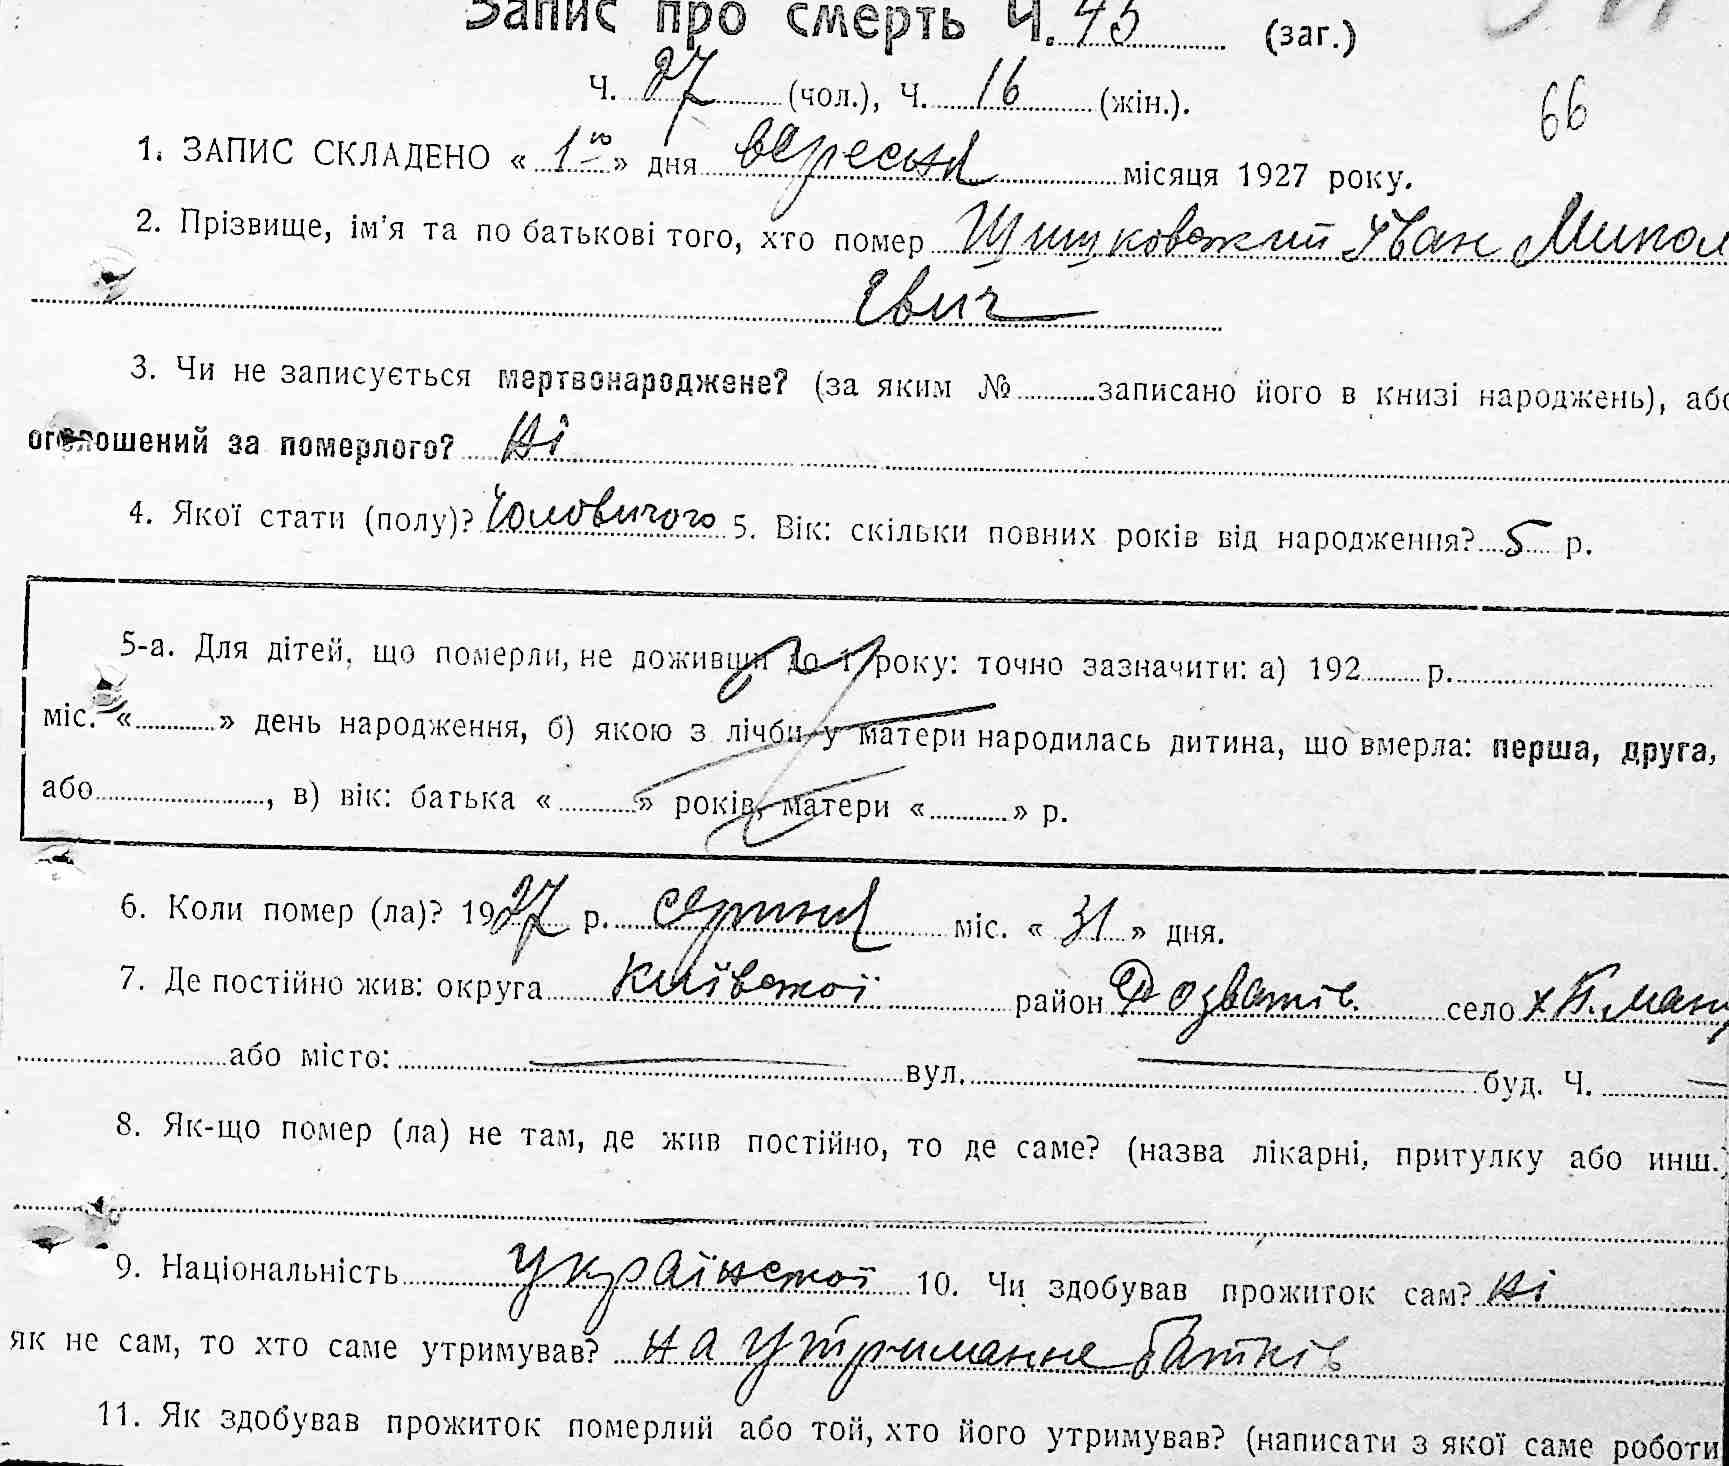 Запис про смерть Ч. 43 (заг.)
Ч. 27 (чол.), Ч. 16 (жін.).
66
1. ЗАПИС СКЛАДЕНО « 1го » дня вересня місяця 1927 року.
2. Прізвище, ім'я та по батькові того, хто помер Іван Микол
євич
3. Чи не записується мертвонароджене? (за яким № записано його в книзі народжень), або
оголошений за померлого? Ні
4. Якої стати (полу)? Чоловичого 5. Вік: скільки повних років від народження? 5 р.
5-а. Для дітей, що померли, не доживши до 1 року: точно зазначити: а) 192 р.
міс. « » день народження, б) якою з лічби у матери народилась дитина, що вмерла: перша, друга,
або , в) вік: батька « » років, матери « » р.
6. Коли помер (ла)? 1927 р. серпня міс. « 31 » дня.
7. Де постійно жив: округа Київської район Розважів. село
або місто: вул. буд. Ч.
8. Як-що помер (ла) не там, де жив постійно, то де саме? (назва лікарні, притулку або инш.)
9. Національність української 10. Чи здобував прожиток сам? Ні
як не сам, то хто саме утримував? на утриманне батків
11. Як здобував прожиток померлий або той, хто його утримував? (написати з якої саме роботи